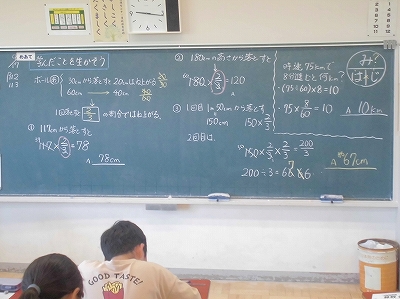 めあて
学んだことを生かそう
ボール㋐ 30cmから落とすと20cmはねあがる 20/30
60cm → 40cm 40/60
1回目を 2/3 の割合ではねあがる。
① 117cmから落とすと
117×2/3=78
A 78cm
② 180kmの高さから落とすと
180×2/3=120
A
③ 1回目 1m50cmから落とす。
150cm 150×2/3
2回目は、
150×2/3×2/3=200/3
200÷3=66.6
A 約67cm
時速75kmで
8分進むと何km?
・(75÷60)×8=10
・75×8/60=10
A 10km
み?
はじ
GOOD TASTE!